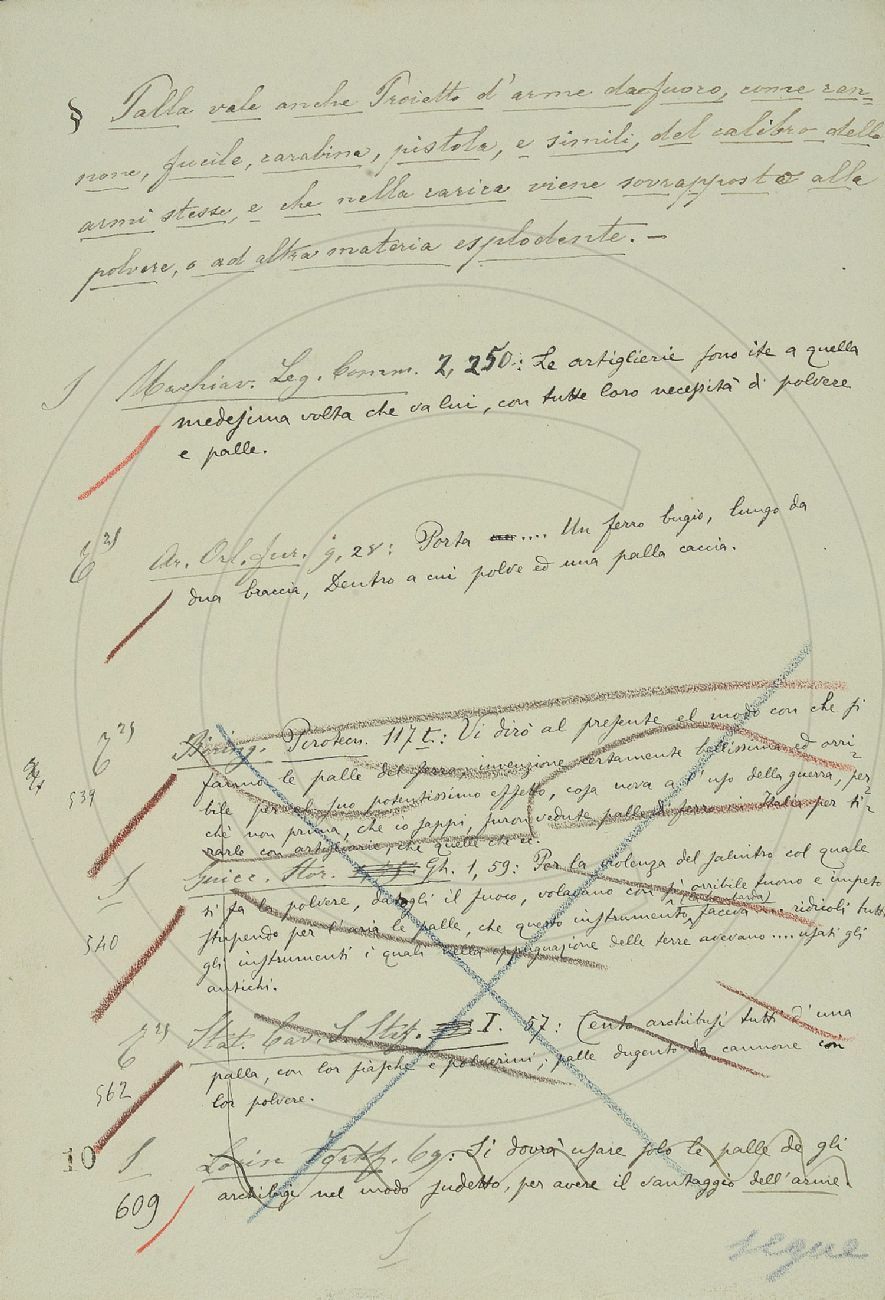 § Palla vale anche Proietto d'arme da fuoco, come can-
none, fucile, carabina, pistola, e simili, del calibro delle
armi stesse, e che nella carica viene sovrapposta alla
polvere, o ad altra materia esplodente. —
S Machiav. Leg. Comm. 2, 250: Le artiglierie sono ite a quella
medesima volta che va lui, con tutte loro necessità di polvere
e palle.
Ar. Orl. fur. 9, 28: Porta .... Un ferro bugio, lungo da
dua braccia, Dentro a cui polve ed una palla caccia.
Biring. Pirotecn. 117 t.: Vi dirò al presente el modo con che si
539
fanno le palle del ferro, invenzione certamente bellissima ed orri-
bile per el suo potentissimo effetto, cosa nova a l'uso della guerra, per-
chè non prima, che io sappi, furon vedute palle di ferro in Italia per ti-
rarle con artiglierie, che quelle che ec.
S Guicc. Stor. Gh. 1, 59: Per la violenza del salnitro col quale
540
si fa la polvere, datogli il fuoco, volavano con sì orribile tuono e impeto
stupendo per l'aria le palle, che questo instrumento (la bombarda) faceva .... ridicoli tutti
gli instrumenti i quali nella oppugnazione delle terre avevano .... usati gli
antichi.
Stat. Cav. S. Stef. I. 57: Cento archibusi tutti d'una
562
palla, con lor fiasche e polverini; palle dugento da cannone con
lor polvere.
10 S 69: Si dovrà usare solo le palle de gli
609
archibugi nel modo sudetto, per avere il vantaggio dell'arme.
S
segue